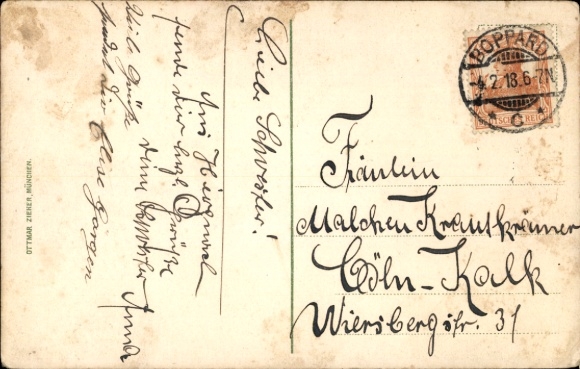 Liebe Schwester!
Aus Hirzenach
sende dir herzl. Grüße
deine Schwester Anna
Viele Grüße
sendet dir Elise
BOPPARD
4.2.18.6-7N.
* C *
DEUTSCHES REICH
Fräulein
Malchen Krautkrämer
Cöln-Kalk
Wiersbergstr. 31
OTTMAR ZIEHER, MÜNCHEN.